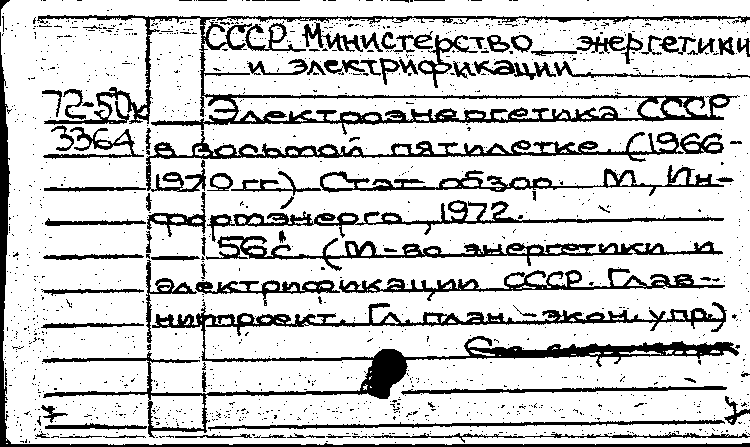 СССР. Министерство энергетики
и электрификации.
72-50к Электроэнергетика СССР
3364 в восьмой пятилетке. (1966-
1970 гг.) Стат. обзор. М., Ин-
формэнерго, 1972.
56 с. (М-во энергетики и
электрификации СССР. Глав-
ниипроект. Гл. план.-экон. упр.).